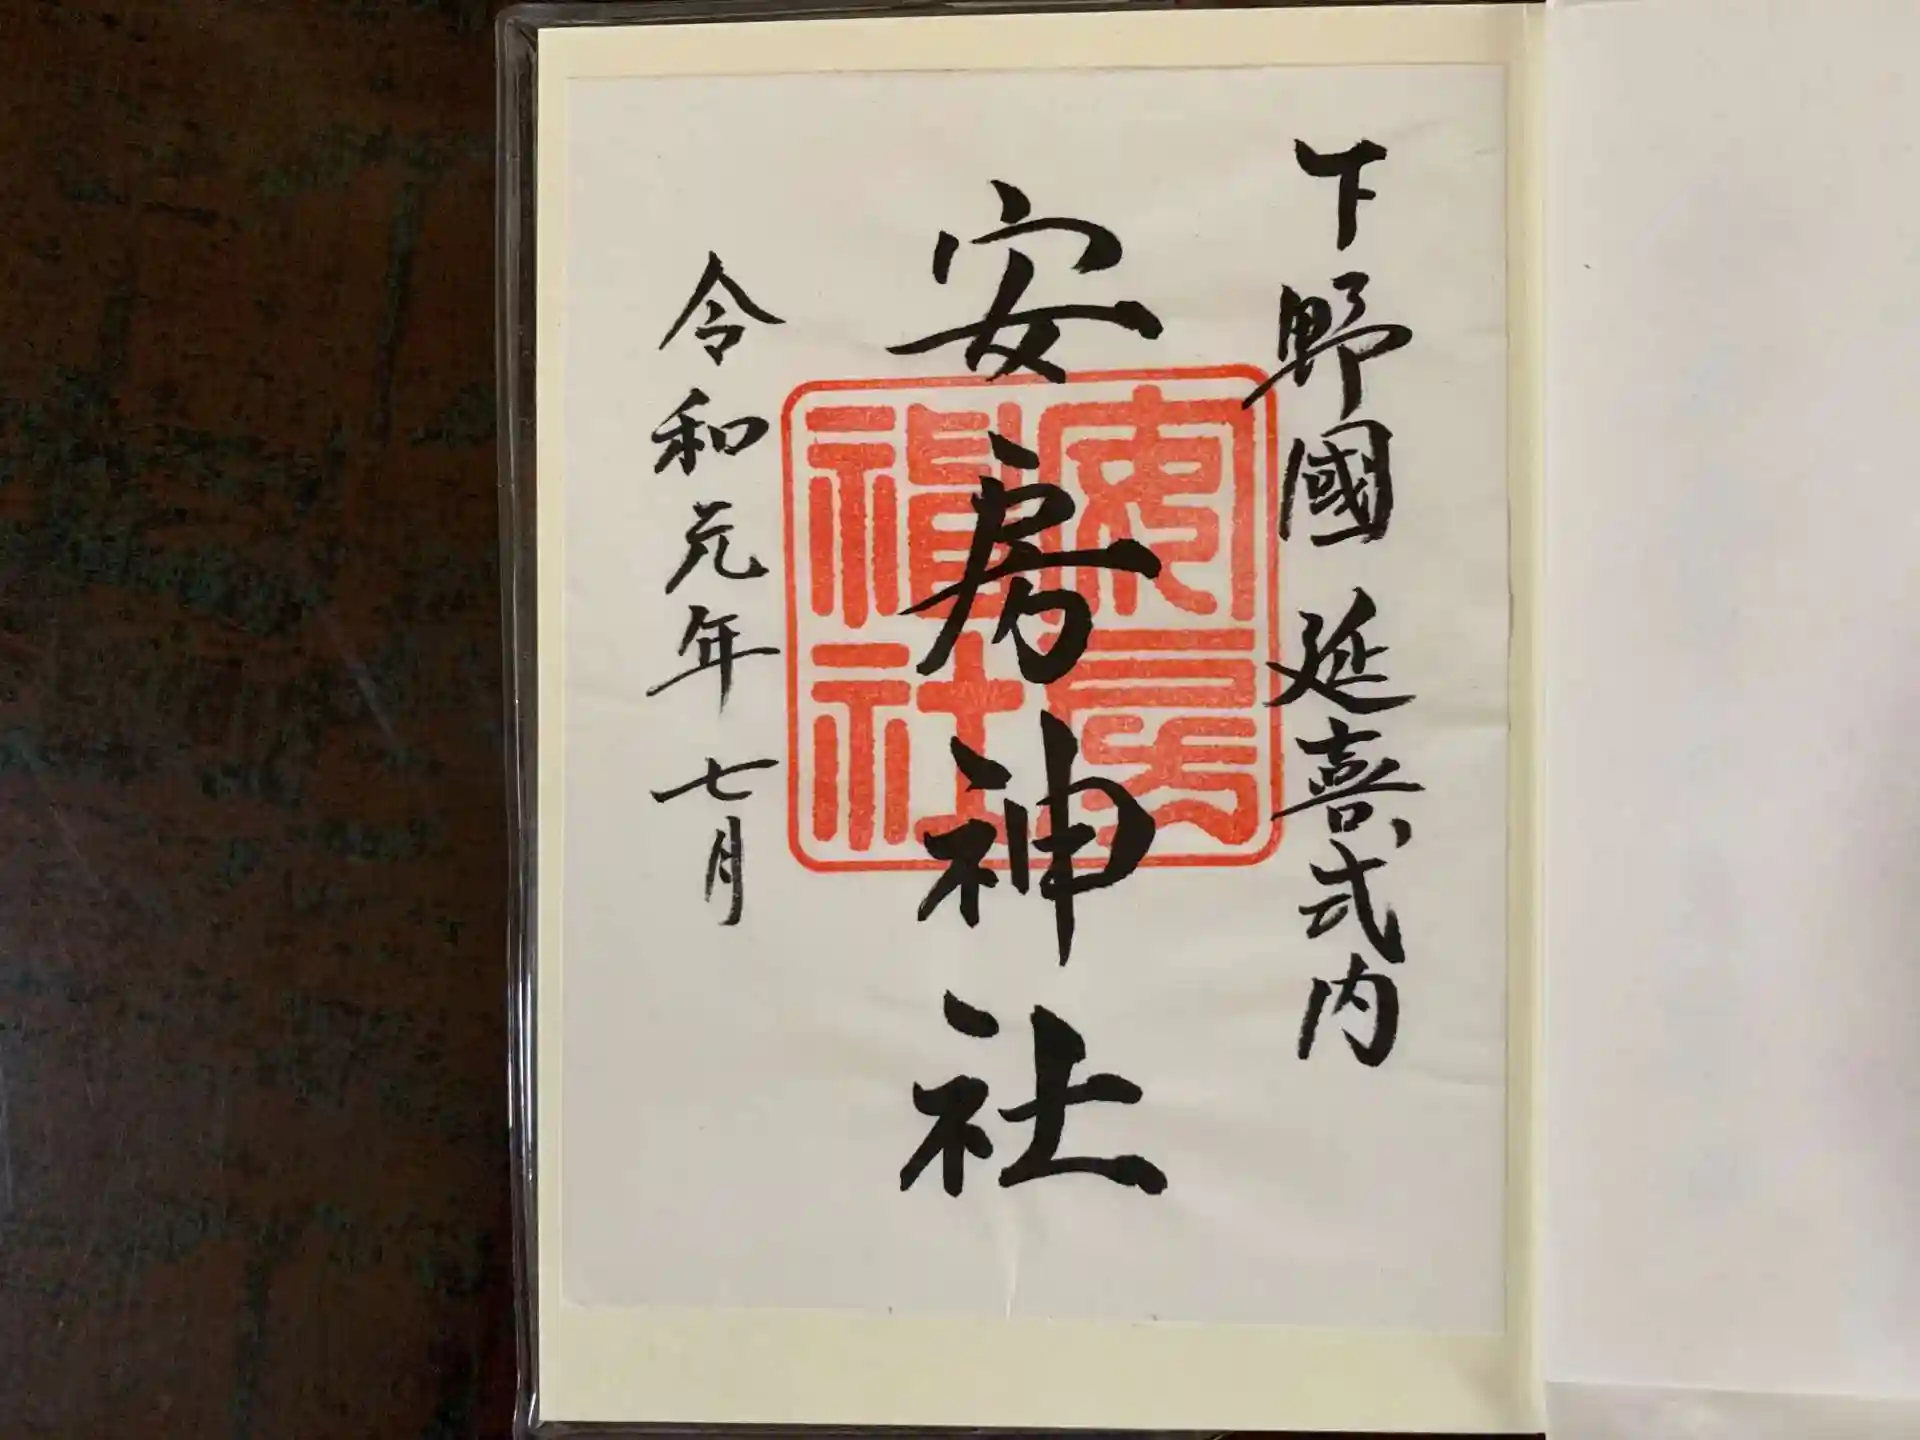 下野國 延喜式内
安房神社
令和元年 七月
安房
神社